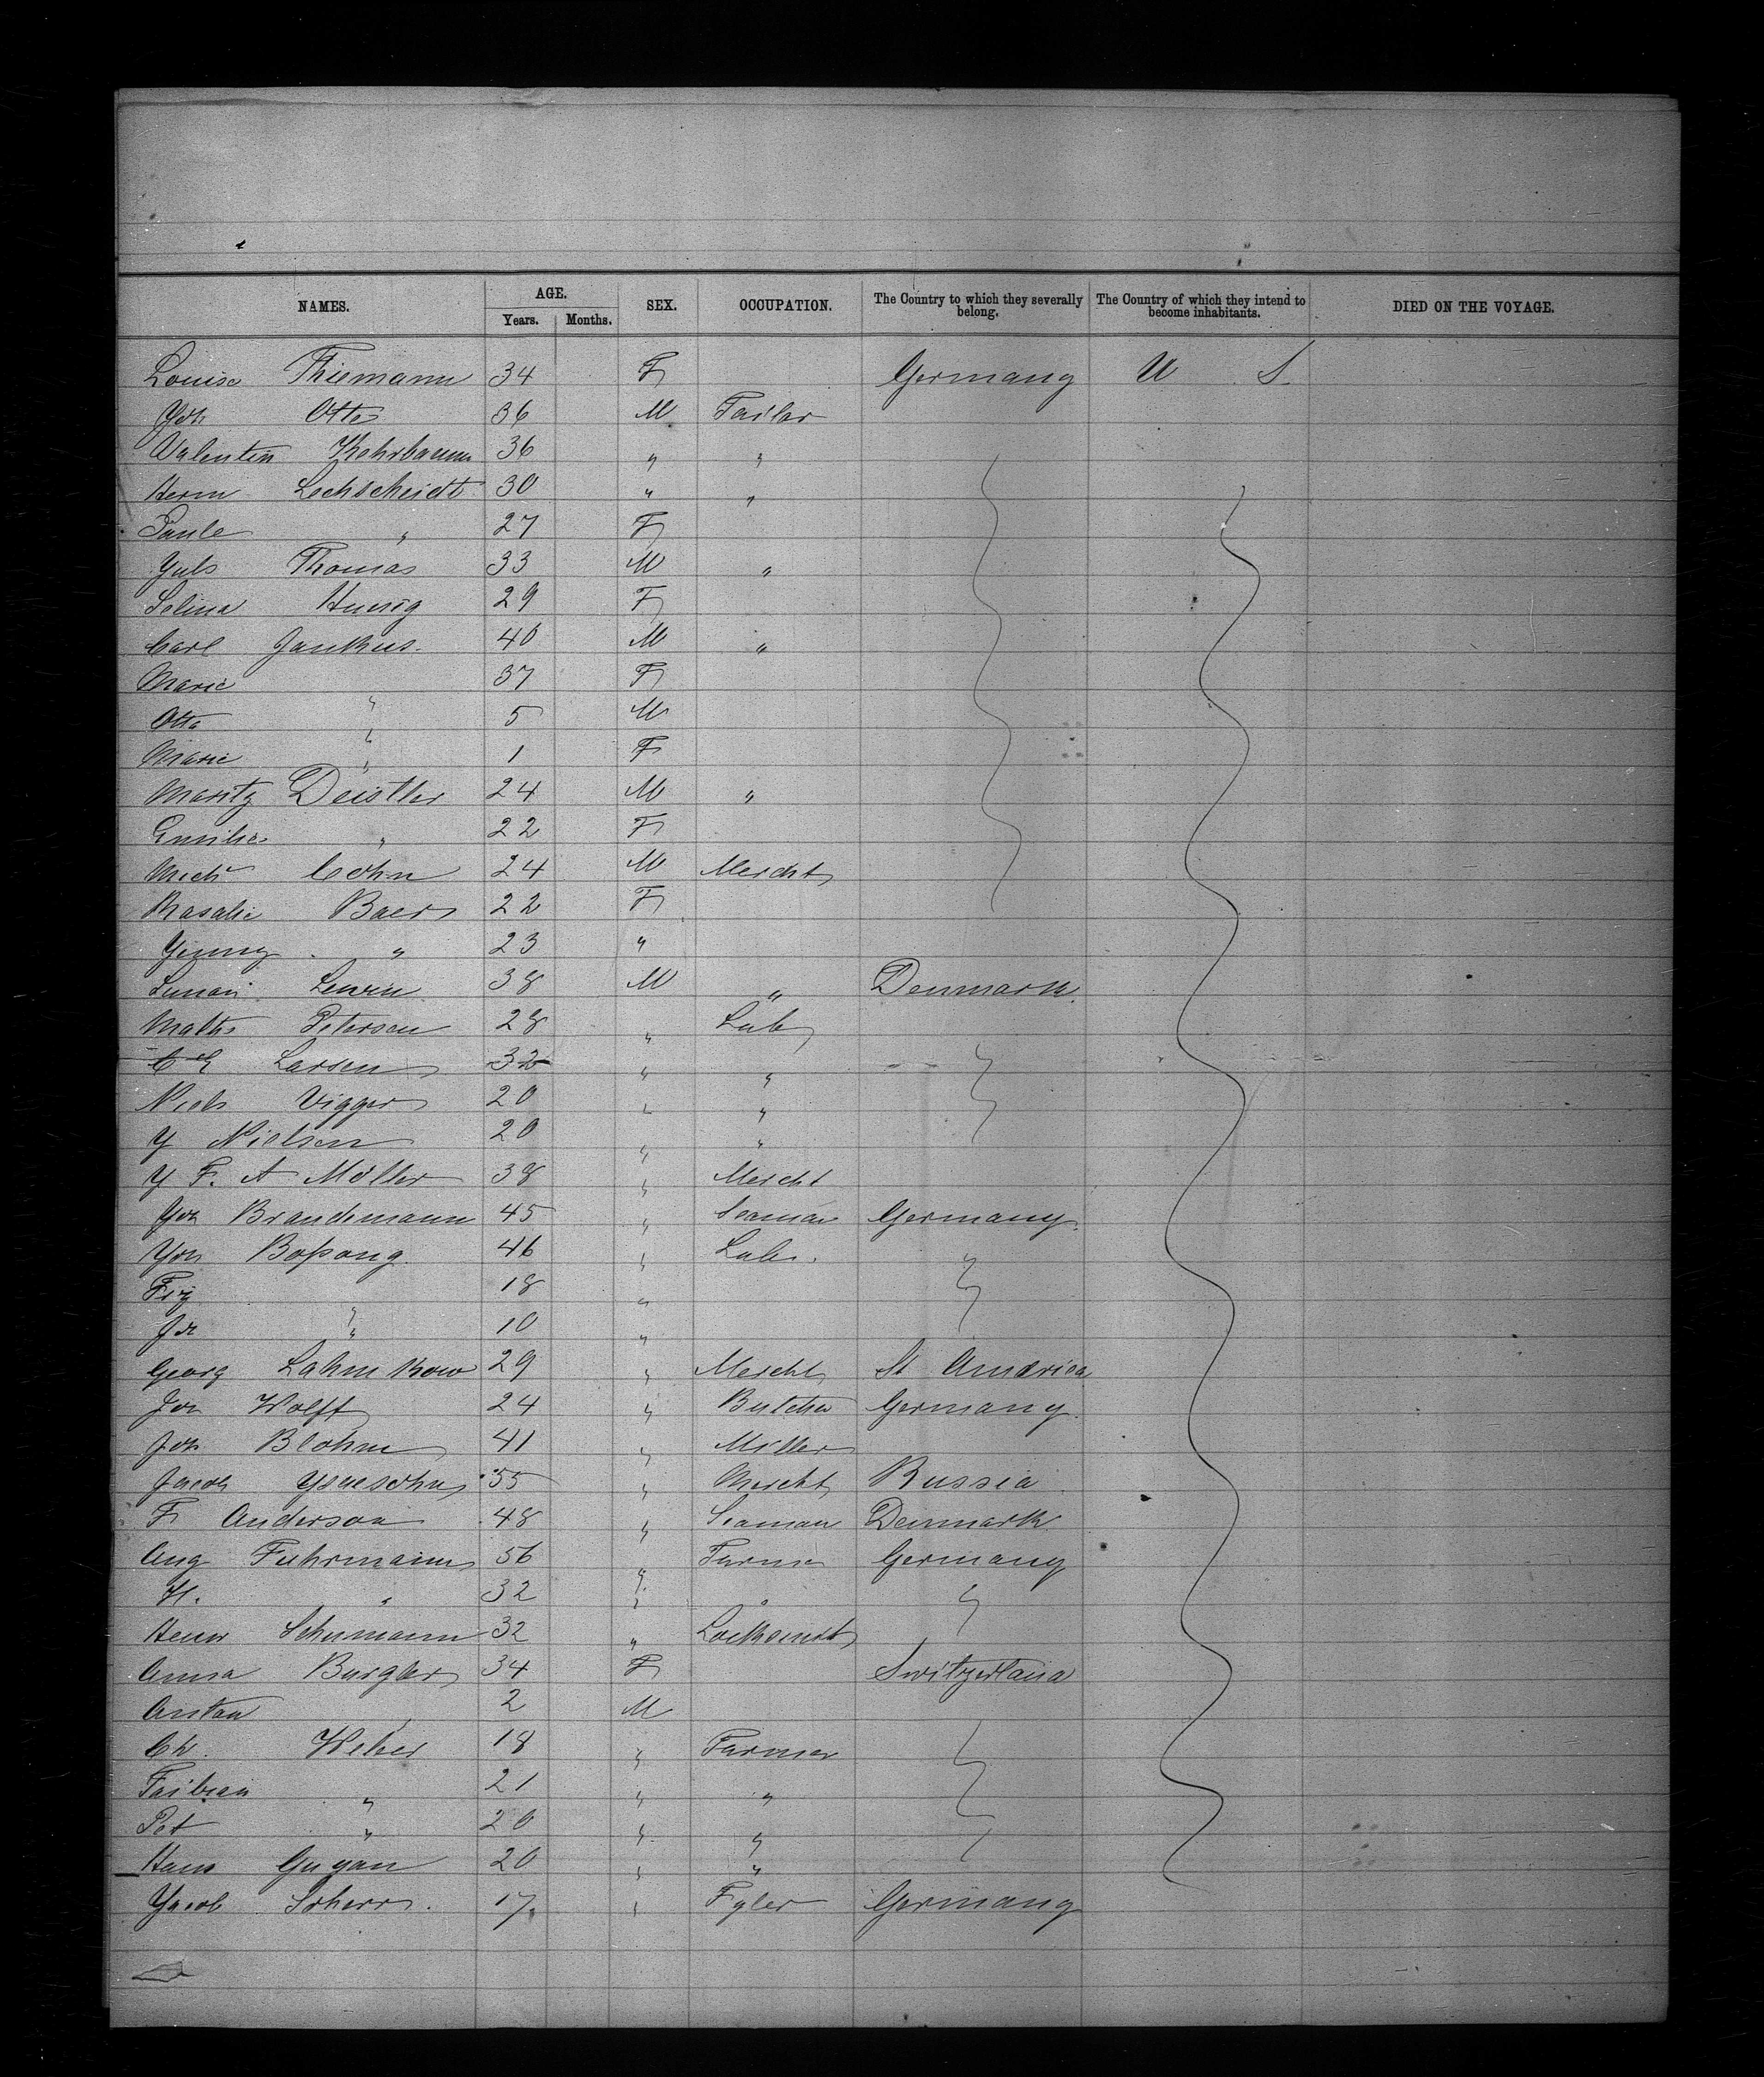 NAMES. AGE. SEX. OCCUPATION. The Country to which they severally belong. The Country of which they intend to become inhabitants. DIED ON THE VOYAGE.
Years. Months.
Louise Thiemann 34 F Germany U S.
Joh Otto 36 M Tailor
Valentin Kehrbaum 36 " "
Herm Lechscheidt 30 " "
Paule " 27 F
Juls Thomas 33 M "
Selina Huenig 29 F
Carl Jankus. 40 M "
Marie " 37 F
Otto " 5 M
Marie " 1 F
Moritz Deistler 24 M "
Emilie " 22 F
Mich Cohn 24 M Mercht
Rosalie Baer 22 F
Jenny " 23 "
Lewin 38 M " Denmark.
Maths Petersen 28 " Lab
C E Larsen 32 " "
Niels Vigger 20 " "
J Nielsen 20 " "
J F. A Möller 38 " Mercht
Joh Brandemann 45 " Seaman Germany.
Joh Boßong 46 " Lab.
" 18 "
" 10 "
Georg Lahm Kow 29 " Mercht St America
Joh Wolff 24 " Butcher Germany.
Joh Blohm 41 " Miller
Jacob 55 " Mercht Russia
F Anderson 48 " Seaman Denmark
Aug Fuhrmann 56 " Farmer Germany
H. " 32 " "
Schumann 32 " Locksmith
Anna Burgler 34 F Switzerland
Anton " 2 M
Ch. Weber 18 " Farmer
" 21 " "
Pet " 20 " "
Hans Gygan 20 " "
Jacob Scherr. 17. " Germany